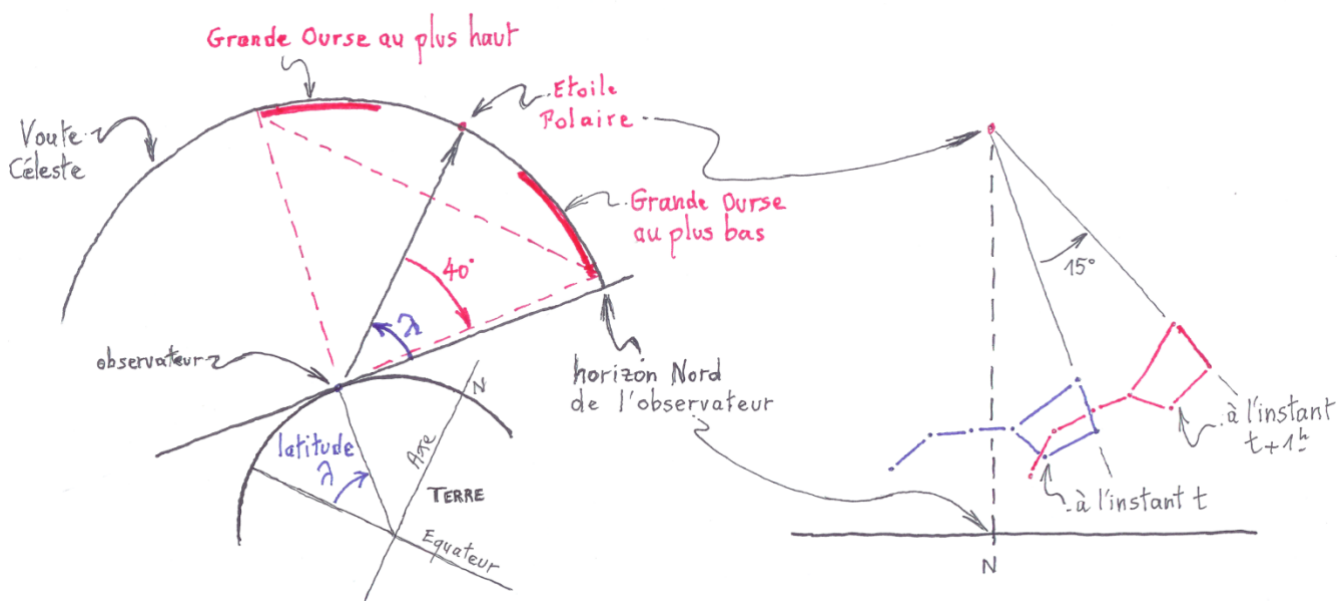 Grande Ourse au plus haut
Etoile
Polaire
Voute
Céleste
Grande Ourse
au plus bas
40°
λ
15°
observateur
horizon Nord
de l'observateur
N
latitude
λ
Axe
TERRE
Equateur
à l'instant
t+1h
à l'instant t
N